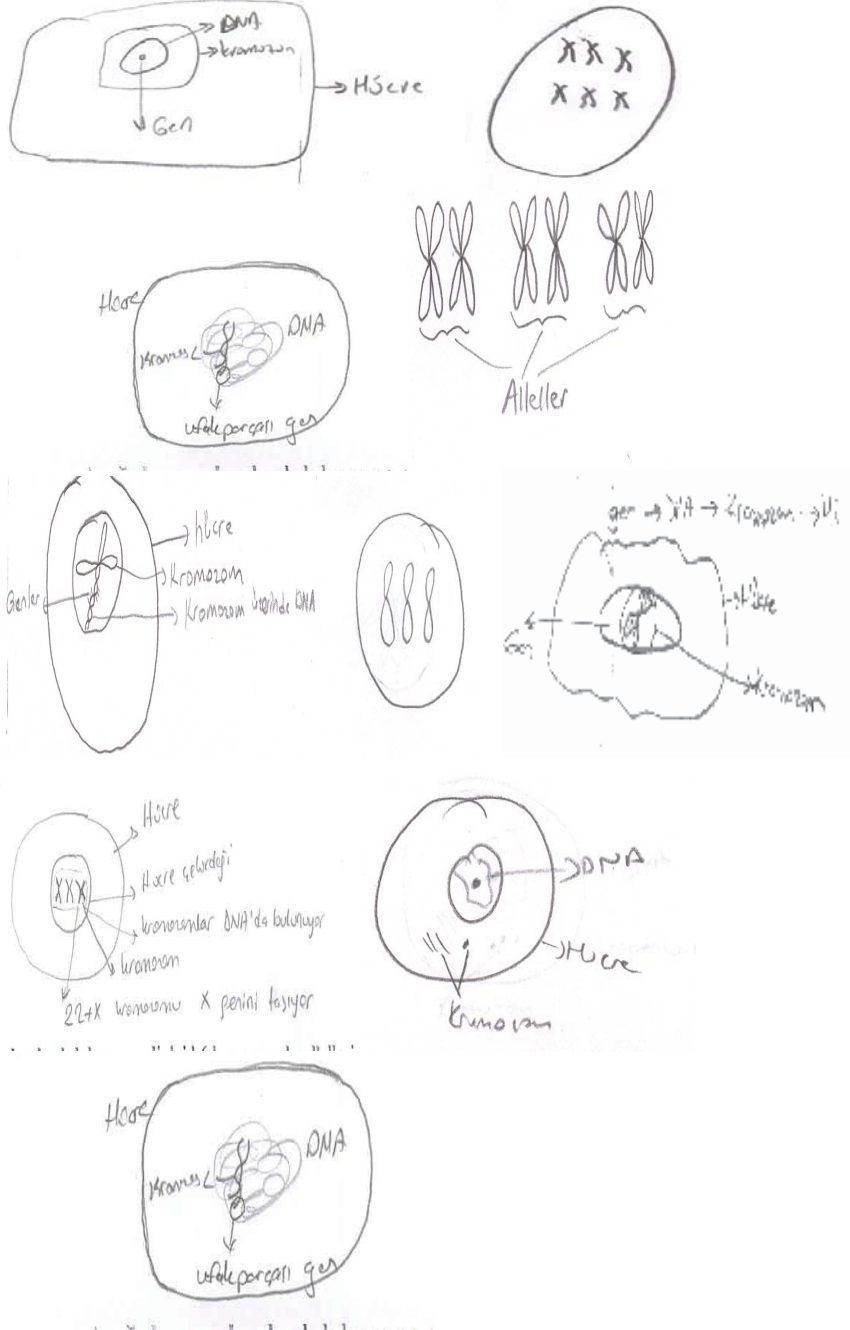 DNA
kromozom
Hücre
Gen
Hücre
DNA
ufak parçası gen
Alleller
hücre
Kromozom
Genler
Kromozom üzerinde DNA
gen → DNA → Kromozom →
Hücre
Gen
Kromozom
Hücre
Hücre çekirdeği
kromozomlar DNA'da bulunuyor
kromozom
22+X kromozomu X genini taşıyor
DNA
Hücre
Kromozom
Hücre
DNA
ufak parçası gen